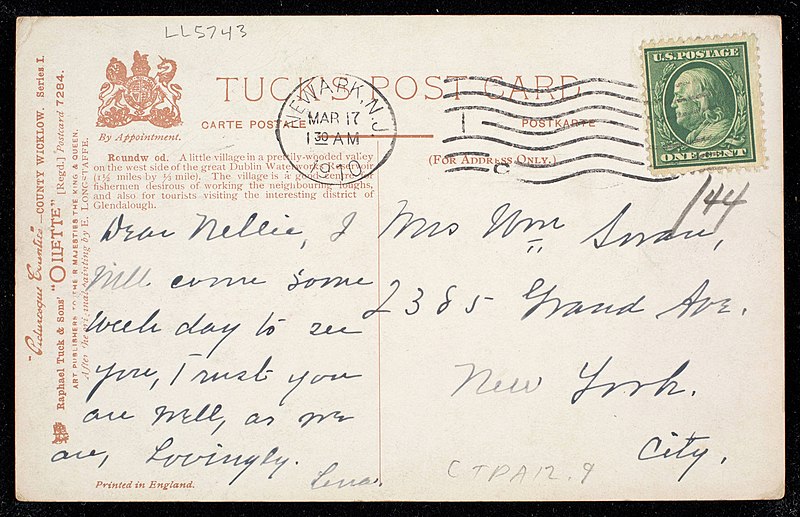 LL5743
TUCK'S POST CARD
By Appointment.
CARTE POSTALE
POSTKARTE
(FOR ADDRESS ONLY.)
NEWARK, N.J.
MAR 17
1 30 AM
1910
1
U.S. POSTAGE
ONE CENT
144
Roundwood. A little village in a prettily-wooded valley
on the west side of the great Dublin Waterworks reservoir
(1½ miles by ½ mile). The village is a good centre
fishermen desirous of working the neighbouring loughs,
and also for tourists visiting the interesting district of
Glendalough.
"Picturesque Counties"—COUNTY WICKLOW. Series I.
Raphael Tuck & Sons' "OILETTE" [Regd.] Postcard 7284.
ART PUBLISHERS TO THEIR MAJESTIES THE KING & QUEEN.
After the original painting by E. LONGSTAFFE.
Dear Nellie, I
Will come some
week day to see
you, I trust you
are well, as we
are, Lovingly.
Lena.
Mrs Wm Swan,
2385 Grand Ave.
New York.
City.
Printed in England.
CTPA12.9